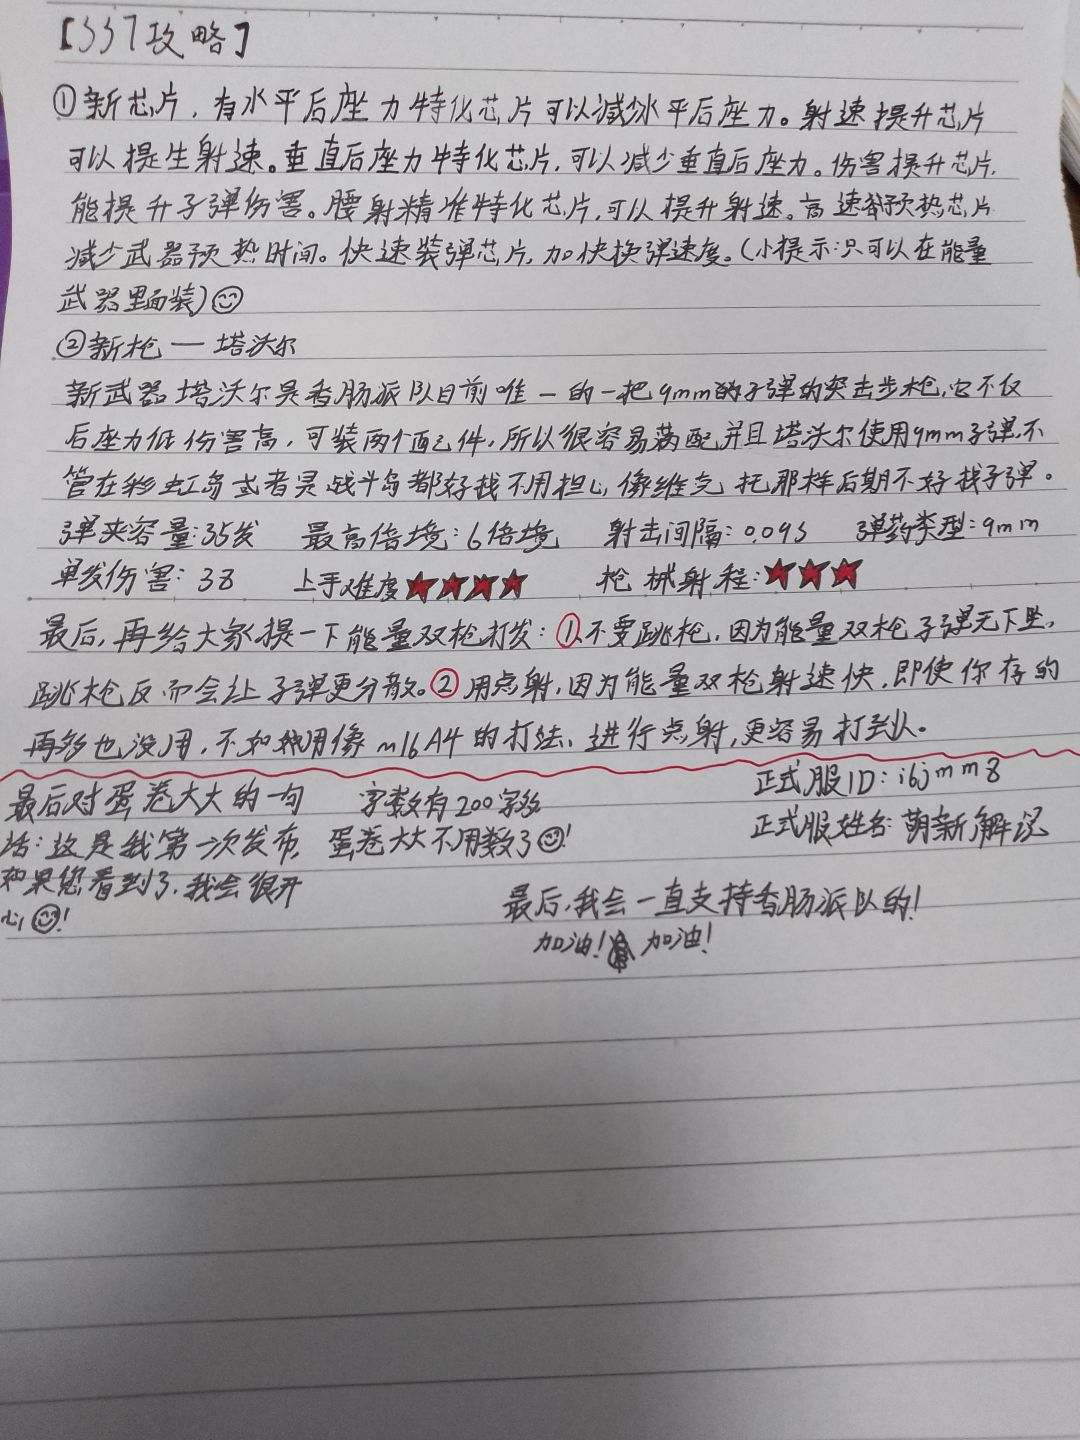 【SS7攻略】
①新芯片，有水平后座力特化芯片可以减少水平后座力。射速提升芯片
可以提生射速。垂直后座力特化芯片，可以减少垂直后座力。伤害提升芯片，
能提升子弹伤害。腰射精准特化芯片，可以提升射速。高速预热芯片
减少武器预热时间。快速装弹芯片，加快换弹速度。（小提示：只可以在能量
武器里面装）
②新枪一塔沃尔
新武器塔沃尔是香肠派队目前唯一的一把9mm的子弹的突击步枪，它不仅
后座力低伤害高，可装两个配件，所以很容易满配并且塔沃尔使用9mm子弹，不
管在彩虹岛或者灵战斗岛都好找不用担心，像维克托那样后期不好找子弹。
弹夹容量：35发 最高倍境：6倍境 射击间隔：0.09s 弹药类型：9mm
单发伤害：38 上手难度★★★★ 枪械射程：★★★
最后，再给大家提一下能量双枪打发：①、不要跳枪，因为能量双枪子弹无下坠，
跳枪反而会让子弹更分散。②用点射，因为能量双枪射速快，即使你存的
再多也没用，不如用像m16A4的打法、进行点射，更容易打到人。
最后对蛋卷大大的一句
话：这是我第一次发布，
如果您看到了，我会很开
心！
字数有200字多
蛋卷大大不用数了！
正式服ID：i6jmm8
正式服姓名：萌新解说
最后，我会一直支持香肠派队的！
加油！加油！